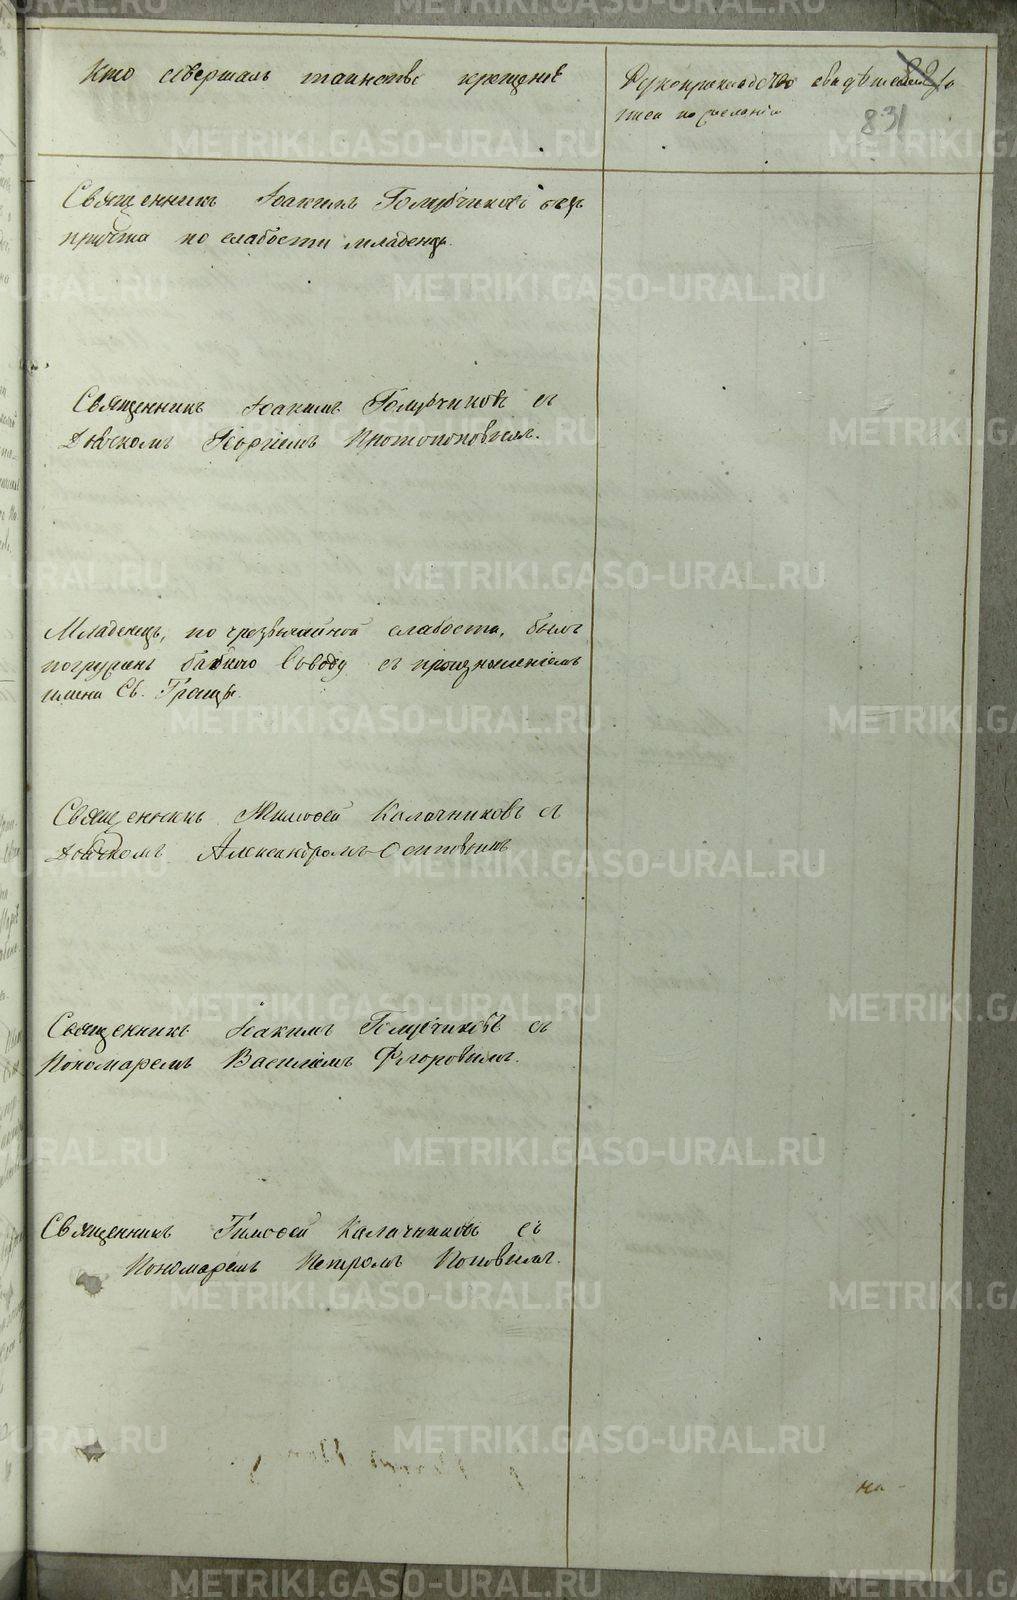 Кто совершалъ таинство крещенiя
Рукоприкладство свидѣтелей за
писи по желанiю
831
Священникъ Іоакимъ Голубчиковъ безъ
причта по слабости младенца.
Священникъ Іоакимъ Голубчиковъ съ
Дьячкомъ Георгiемъ Протопоповымъ.
Младенецъ, по чрезвычайной слабости, былъ
погружинъ бабкою въ воду съ произношенiемъ
имени Св. Троицы.
Священникъ Тимофей Калачниковъ съ
Дьячкомъ Александромъ Осиповымъ
Священникъ Іоакимъ Голубчиковъ съ
Пономаремъ Василiемъ Флоровымъ.
Священникъ Тимофей Калачниковъ съ
Пономаремъ Петромъ Поповымъ.
на
METRIKI.GASO-URAL.RU